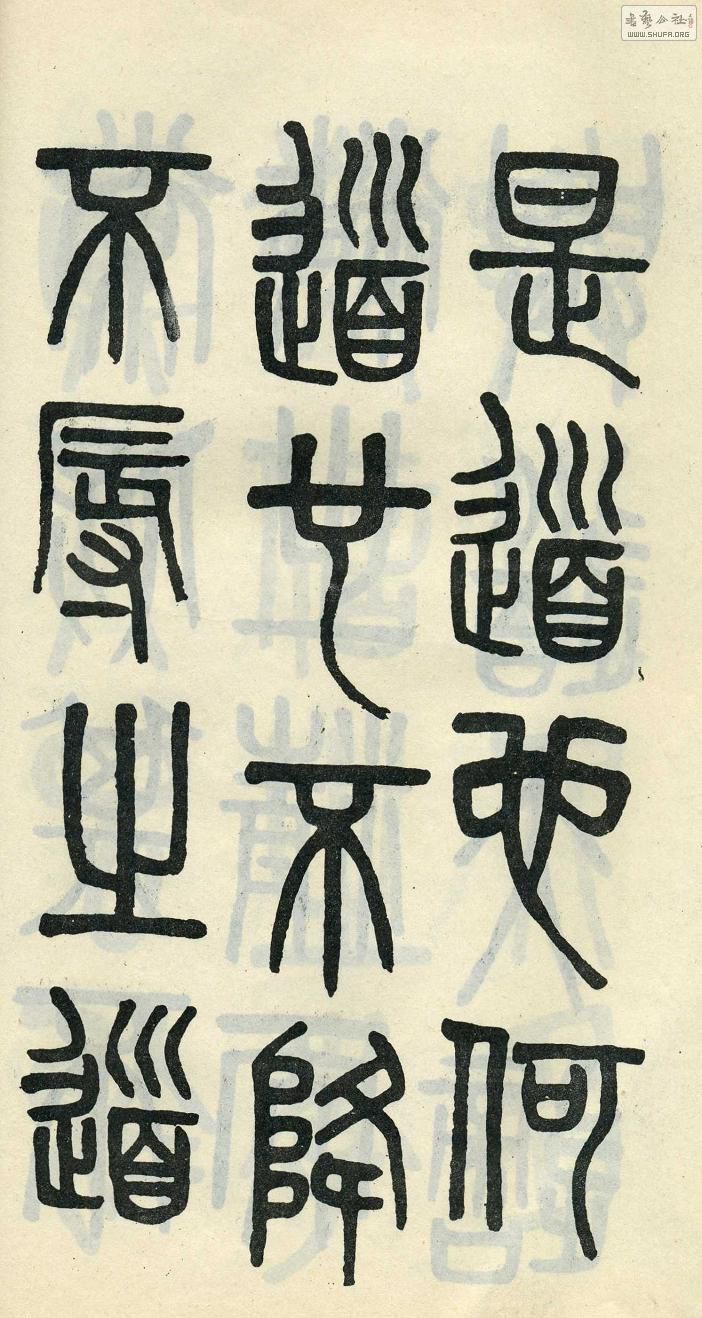 是道也何
道也不降
不辱之道
書藝公社
WWW.SHUFA.ORG